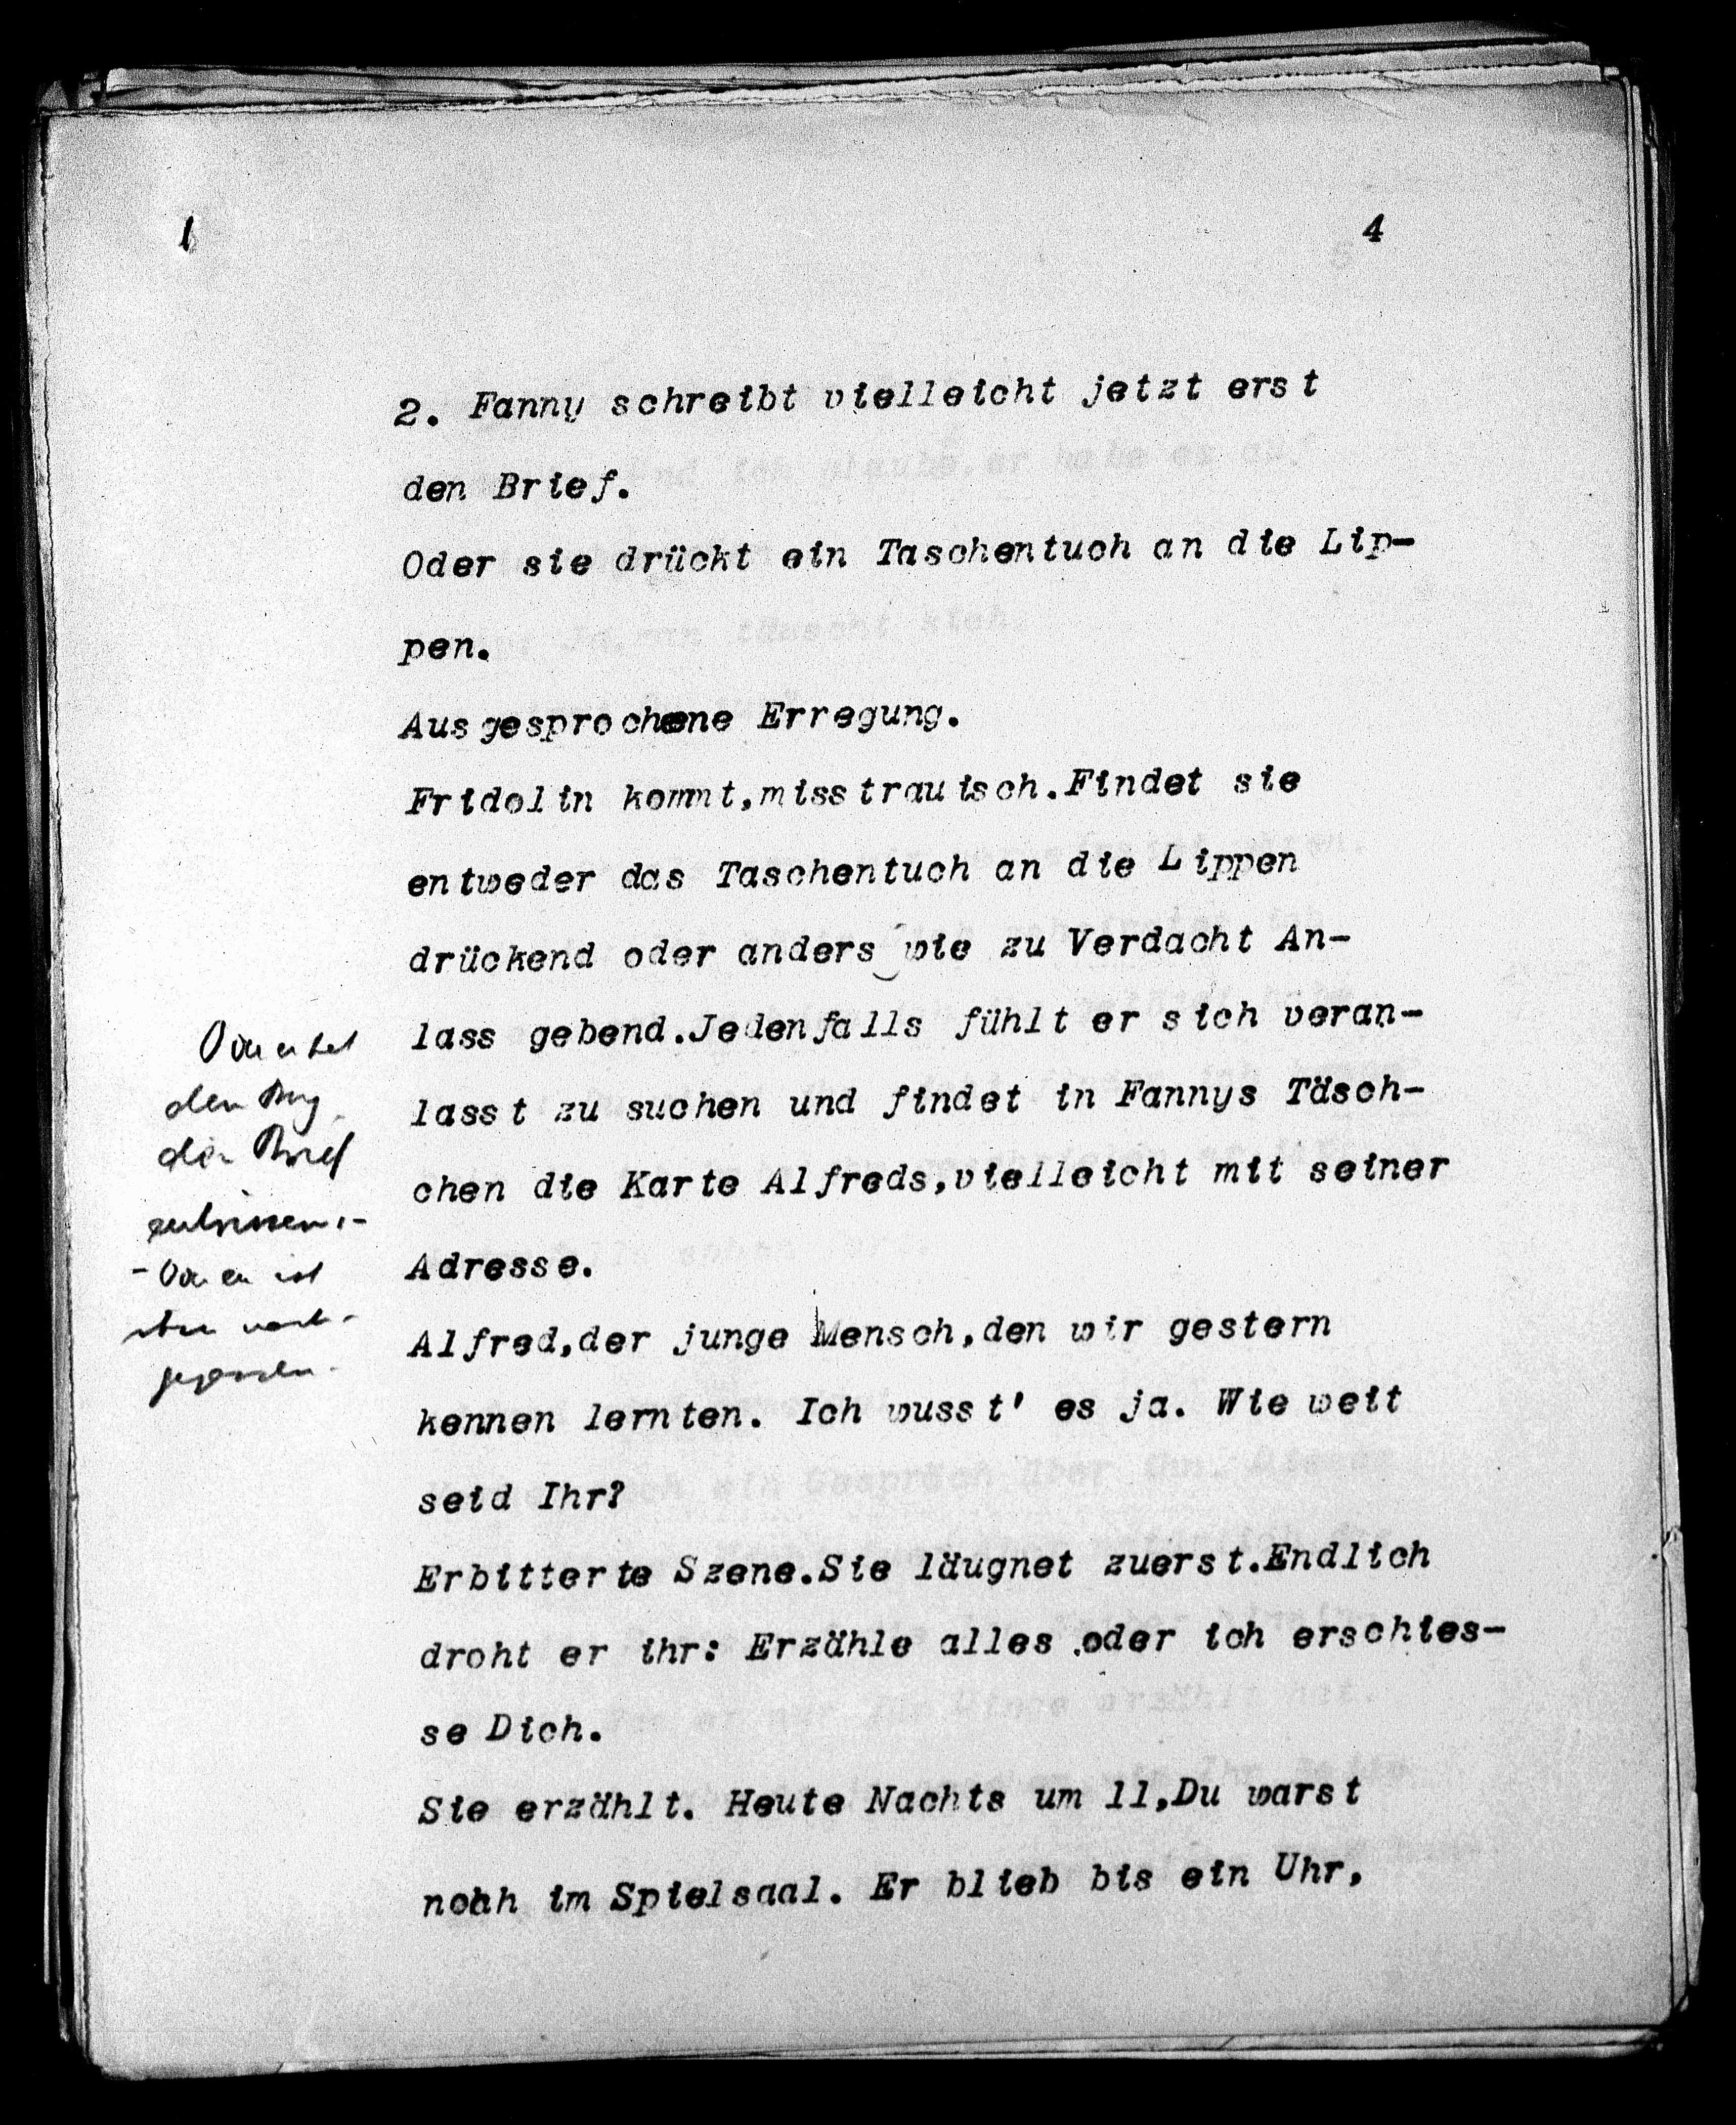 1 4
2. Fanny schreibt vielleicht jetzt erst
den Brief.
Oder sie drückt ein Taschentuch an die Lip-
pen.
Ausgesprochene Erregung.
Fridolin kommt,misstrauisch.Findet sie
entweder das Taschentuch an die Lippen
drückend oder anders wie zu Verdacht An-
lass gebend.Jedenfalls fühlt er sich veran-
lasst zu suchen und findet in Fannys Täsch-
chen die Karte Alfreds,vielleicht mit seiner
Adresse.
Alfred,der junge Mensch,den wir gestern
kennen lernten. Ich wusst' es ja. Wie weit
seid Ihr?
Erbitterte Szene.Sie läugnet zuerst.Endlich
droht er ihr: Erzähle alles oder ich erschies-
se Dich.
Sie erzählt. Heute Nachts um 11,Du warst
noch im Spielsaal. Er blieb bis ein Uhr,
Oder er hat
den
den Brief
entrissen.-
- Oder er ist
ihr nach-